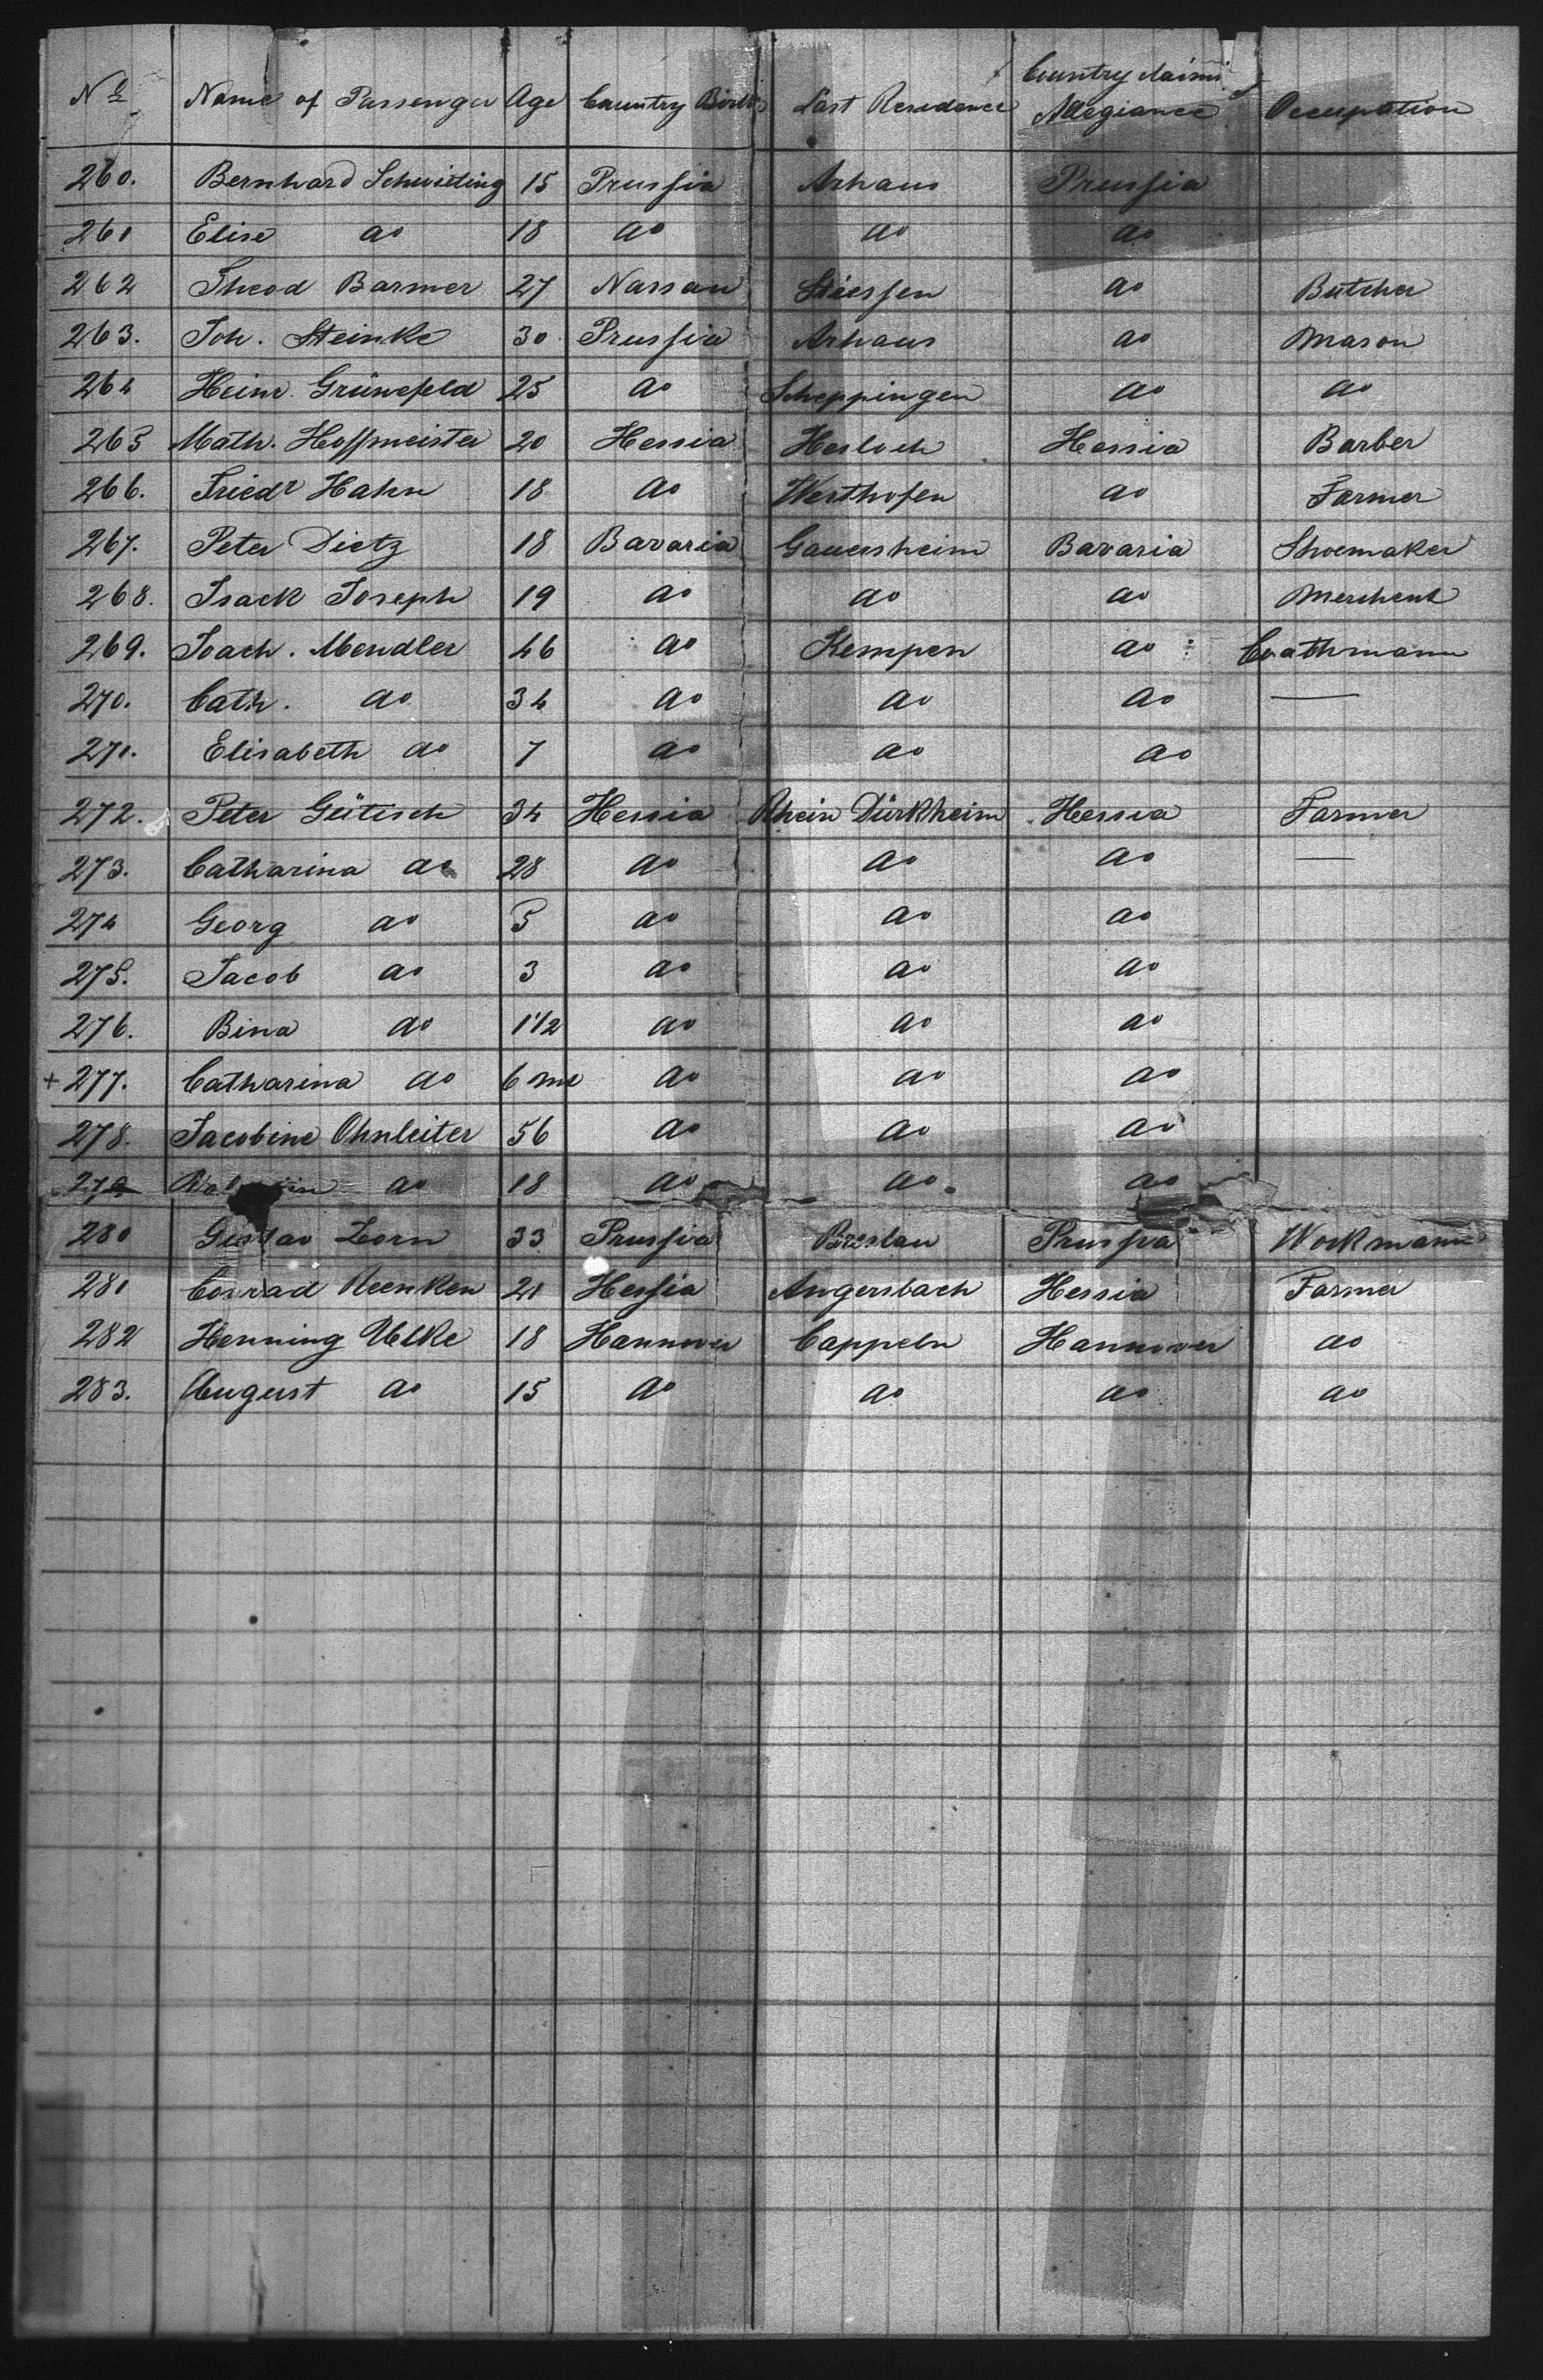 No Name of Passenger Age Country Birth Last Residence Country claims Allegiance Occupation
260. Bernhard Schwieting 15 Prussia Arhaus Prussia
261 Elise do 18 do do do
262 Theod Barmer 27 Nassau do Butcher
263. Joh. Steinke 30 Prussia Arhaus do Mason
264 Heinr. Grünefeld 25 do Scheppingen do do
265 Math. Hoffmeister 20 Hessia Hesloch Hessia Barber
266. Friedr Hahn 18 do Westhofen do Farmer
267. Peter Dietz 18 Bavaria Gauersheim Bavaria Shoemaker
268. Isack Joseph 19 do do do Merchent
269. Joach. Mendler 46 do Kempen do Coathmann
270. Cath. do 34 do do do —
271. Elisabeth do 7 do do do
272. Peter Gütisch 34 Hessia Rhein Dürkheim Hessia Farmer
273. Catharina do 28 do do do —
274 Georg do 5 do do do
275. Jacob do 3 do do do
276. Bina do 1 1/2 do do do
+ 277. Catharina do 6 mt do do do
278. Jacobine Ohnleiter 56 do do do
279 do 18 do do do
280 Gustav Zorn 33 Prussia Breslau Prussia Workmann
281 Conrad Reenken 21 Hessia Angersbach Hessia Farmer
282 Henning Uelke 18 Hannover Cappeln Hannover do
283. August do 15 do do do do